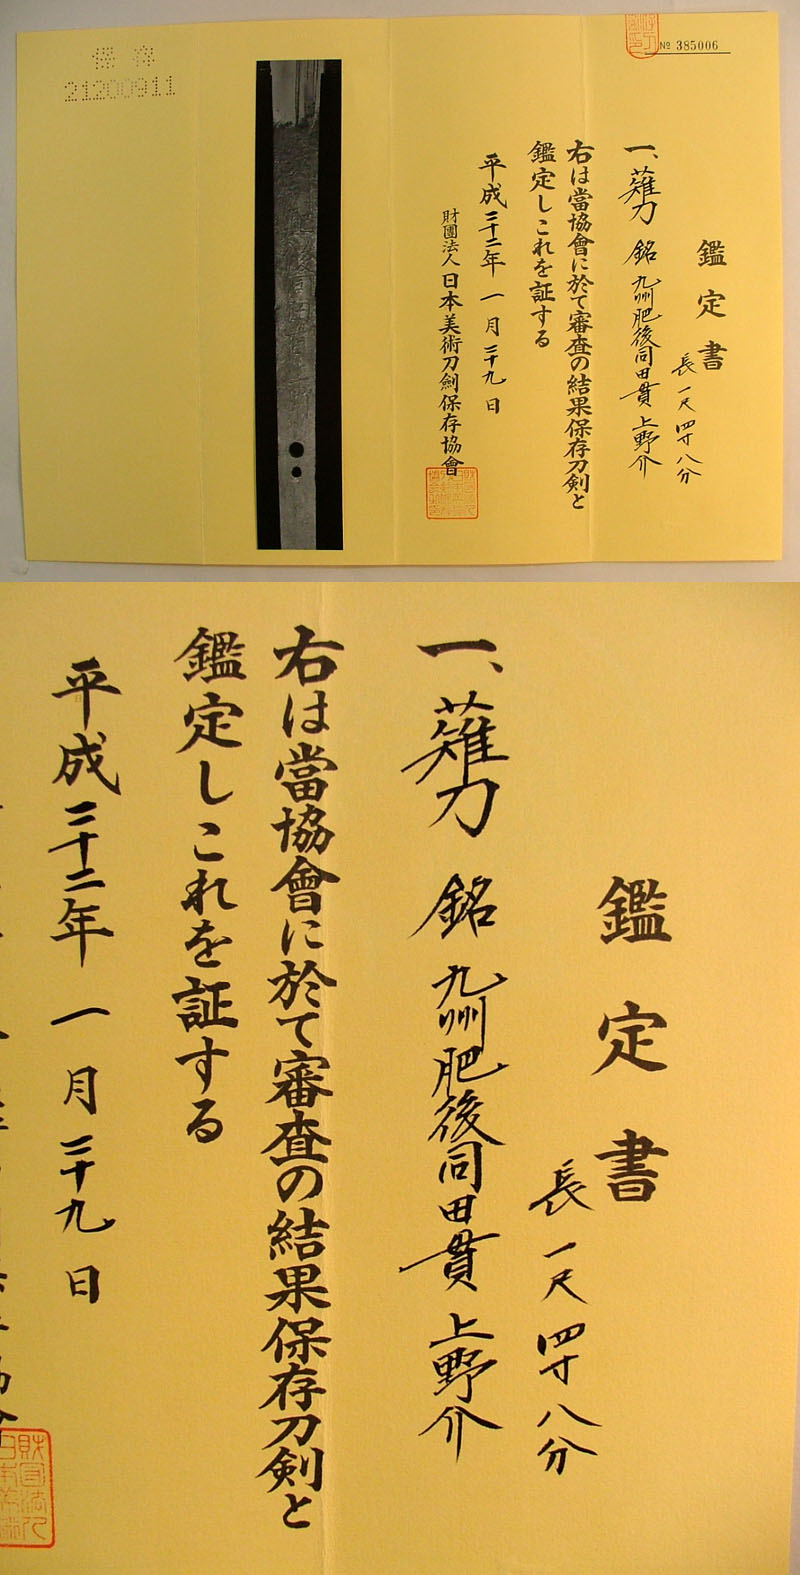 № 385006
鑑定書
長 一尺 四寸 八分
一、薙刀 銘 九州肥後同田貫上野介
右は當協會に於て審査の結果保存刀剣と
鑑定しこれを証する
平成二十二年 一月 二十九日
財團法人 日本美術刀劍保存協會
保存
21200911
鑑定書
長 一尺 四寸 八分
一、薙刀 銘 九州肥後同田貫上野介
右は當協會に於て審査の結果保存刀剣と
鑑定しこれを証する
平成二十二年 一月 二十九日